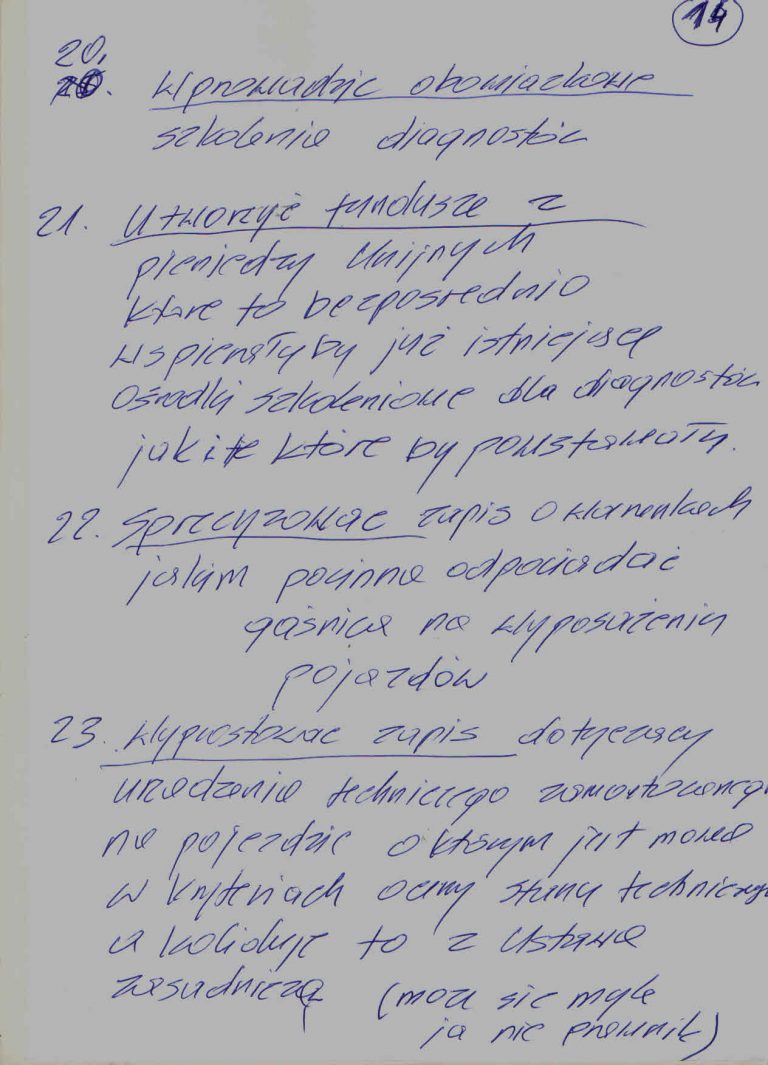 14
20.
20. Wprowadzić obowiązkowe
szkolenia diagnostów
21. Utworzyć fundusze z
pieniędzy Unijnych
które to bezpośrednio
wspierały by już istniejące
Ośrodki szkoleniowe dla diagnostów
jak i te które by powstawały.
22. Sprecyzować zapis o warunkach
jakim powinna odpowiadać
gaśnica na wyposażeniu
pojazdów
23. Wyprostować zapis dotyczący
urządzenia technicznego zamontowanego
na pojeździe o którym jest mowa
w kryteriach oceny stanu technicznego
a koliduje to z Ustawą
zasadniczą (może się mylę
ja nie prawnik)